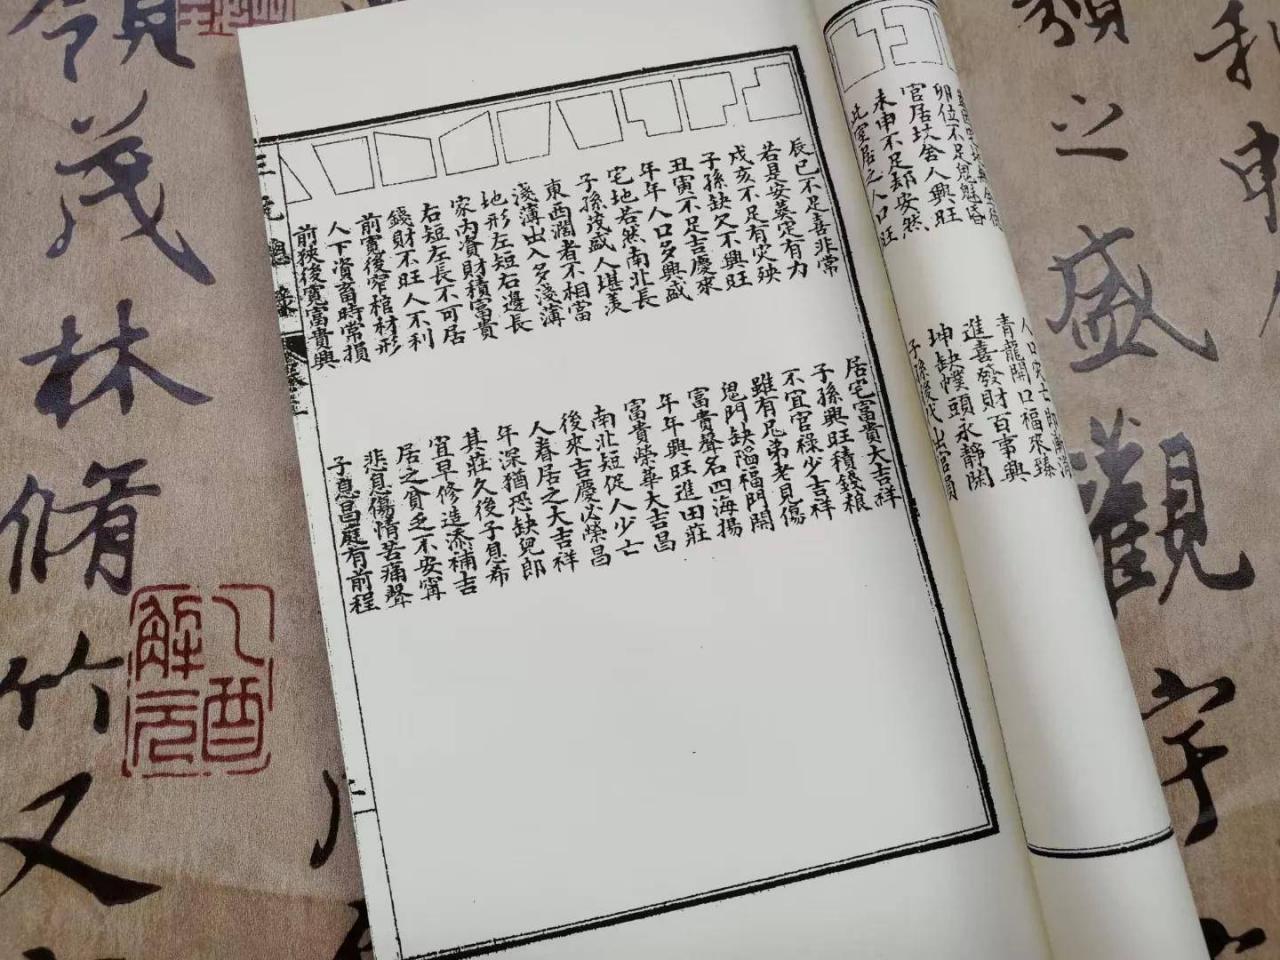 卯位不足
官居坟舍人興旺
未申不足却安然
此室居之人口旺
人口災亡即漸消
青龍開口福來臻
進喜發財百事興
坤缺幞頭永靜閑
子孫後代出官員
辰巳不足喜非常
若是安定有力
戌亥不足有災殃
子孫缺欠不興旺
丑寅不足吉慶來
年年人口多興盛
宅地若然南北長
子孫茂盛人堪羨
東西濶者不相當
淺薄出入多淺薄
地形左短右邊長
家內資財積富貴
右短左長不可居
錢財不旺人不利
前寬後窄棺材形
人下資畜時常損
前狹後寬富貴興
居宅富貴大吉祥
子孫興旺積錢粮
不宜官祿少吉祥
雖有兄弟老見傷
鬼門缺陥福門開
富貴聲名四海揚
年年興旺進田莊
富貴榮華大吉昌
南北短促人少亡
後來吉慶必榮昌
人眷居之大吉祥
年深猶恐缺兒郎
其莊久後子息希
宜早修造添補吉
居之貧乏不安寧
悲息傷情苦痛聲
子息昌庭有前程
三元總錄
類之盛觀宇
領茂林脩竹又
乙酉解元